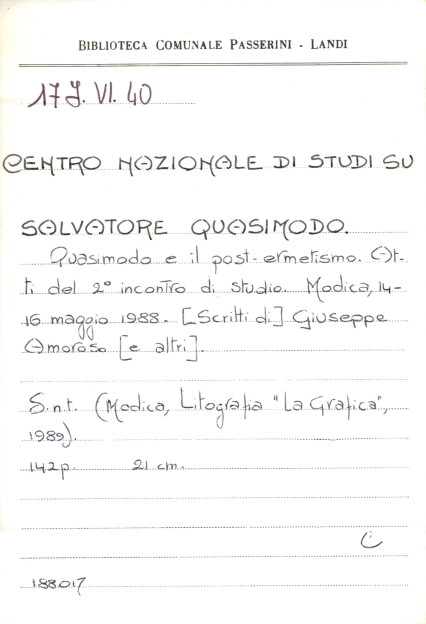 BIBLIOTECA COMUNALE PASSERINI - LANDI
17 J. VI. 40
CENTRO NAZIONALE DI STUDI SU
SALVATORE QUASIMODO.
Quasimodo e il post-ermetismo. At-
ti del 2° incontro di studio. Modica, 14-
16 maggio 1988. [Scritti di] Giuseppe
Amoroso [e altri].
S.n.t. (Modica, Litografia "La Grafica",
1989).
142 p. 21 cm.
C
188017